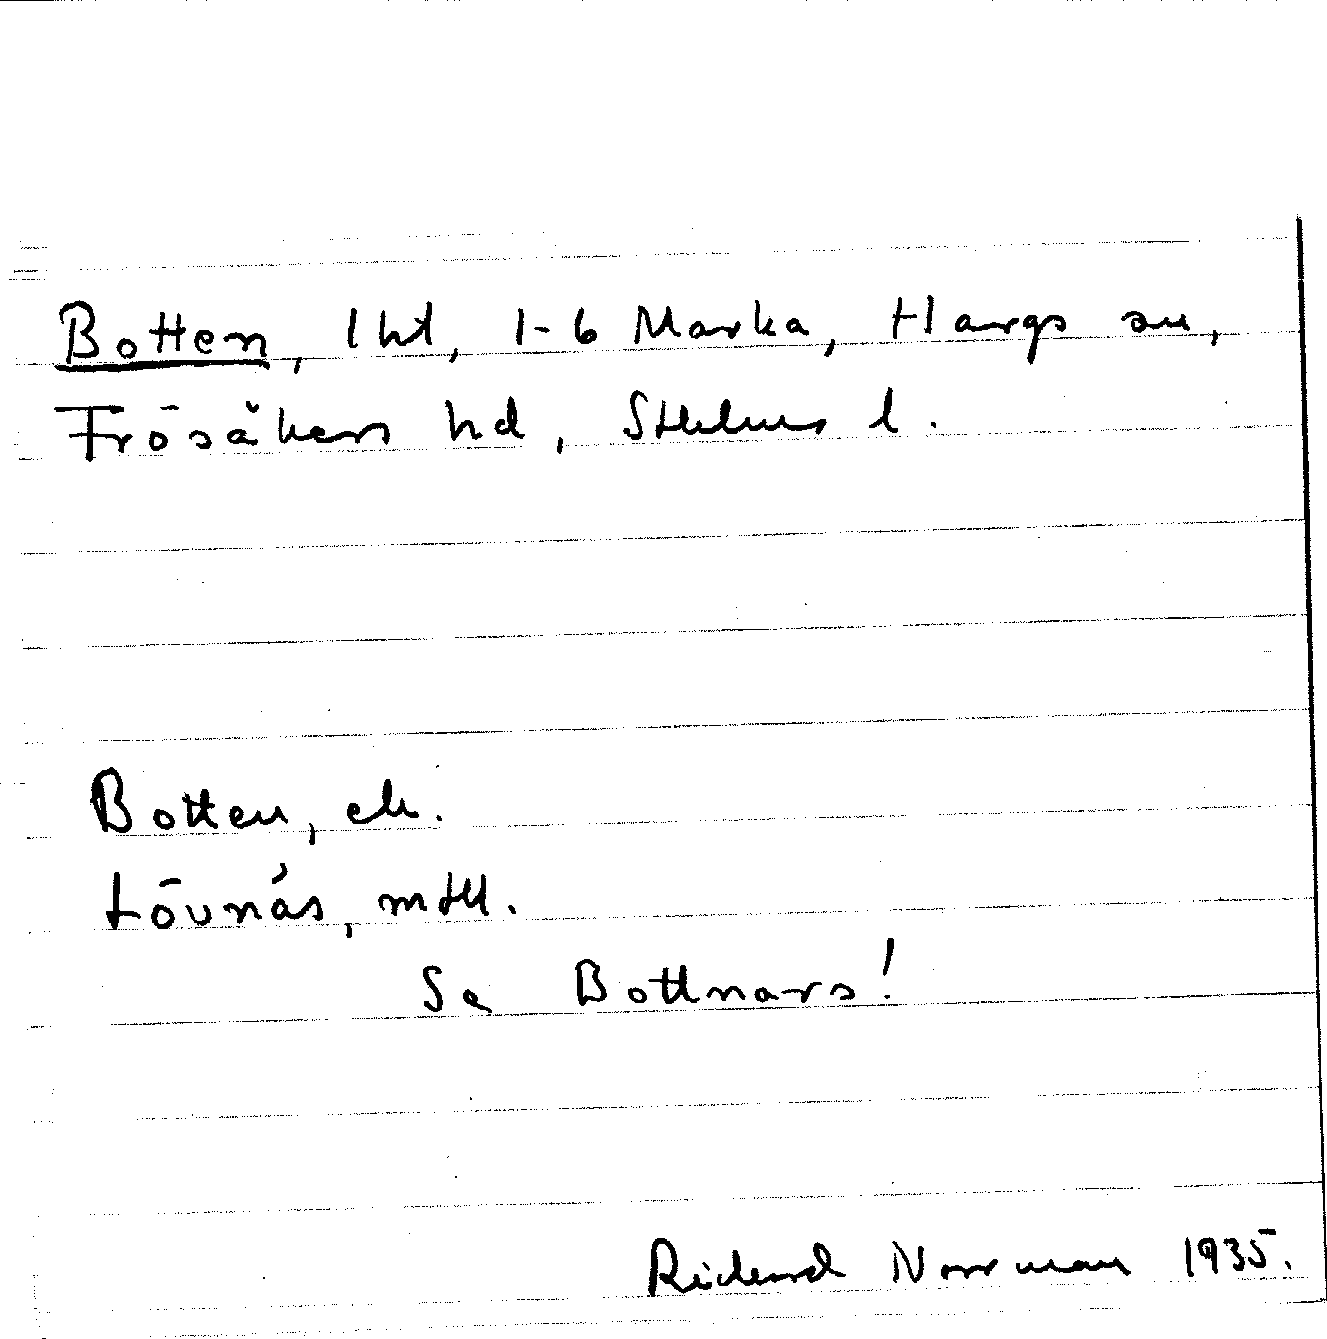 Botten, lht, 1-6 Marka, Hargs sn,
Frösåkers hd, Sthlms l.
Botten, ek.
Lövnäs, mtll.
Se Bottnars!
Richard Norrman 1935.